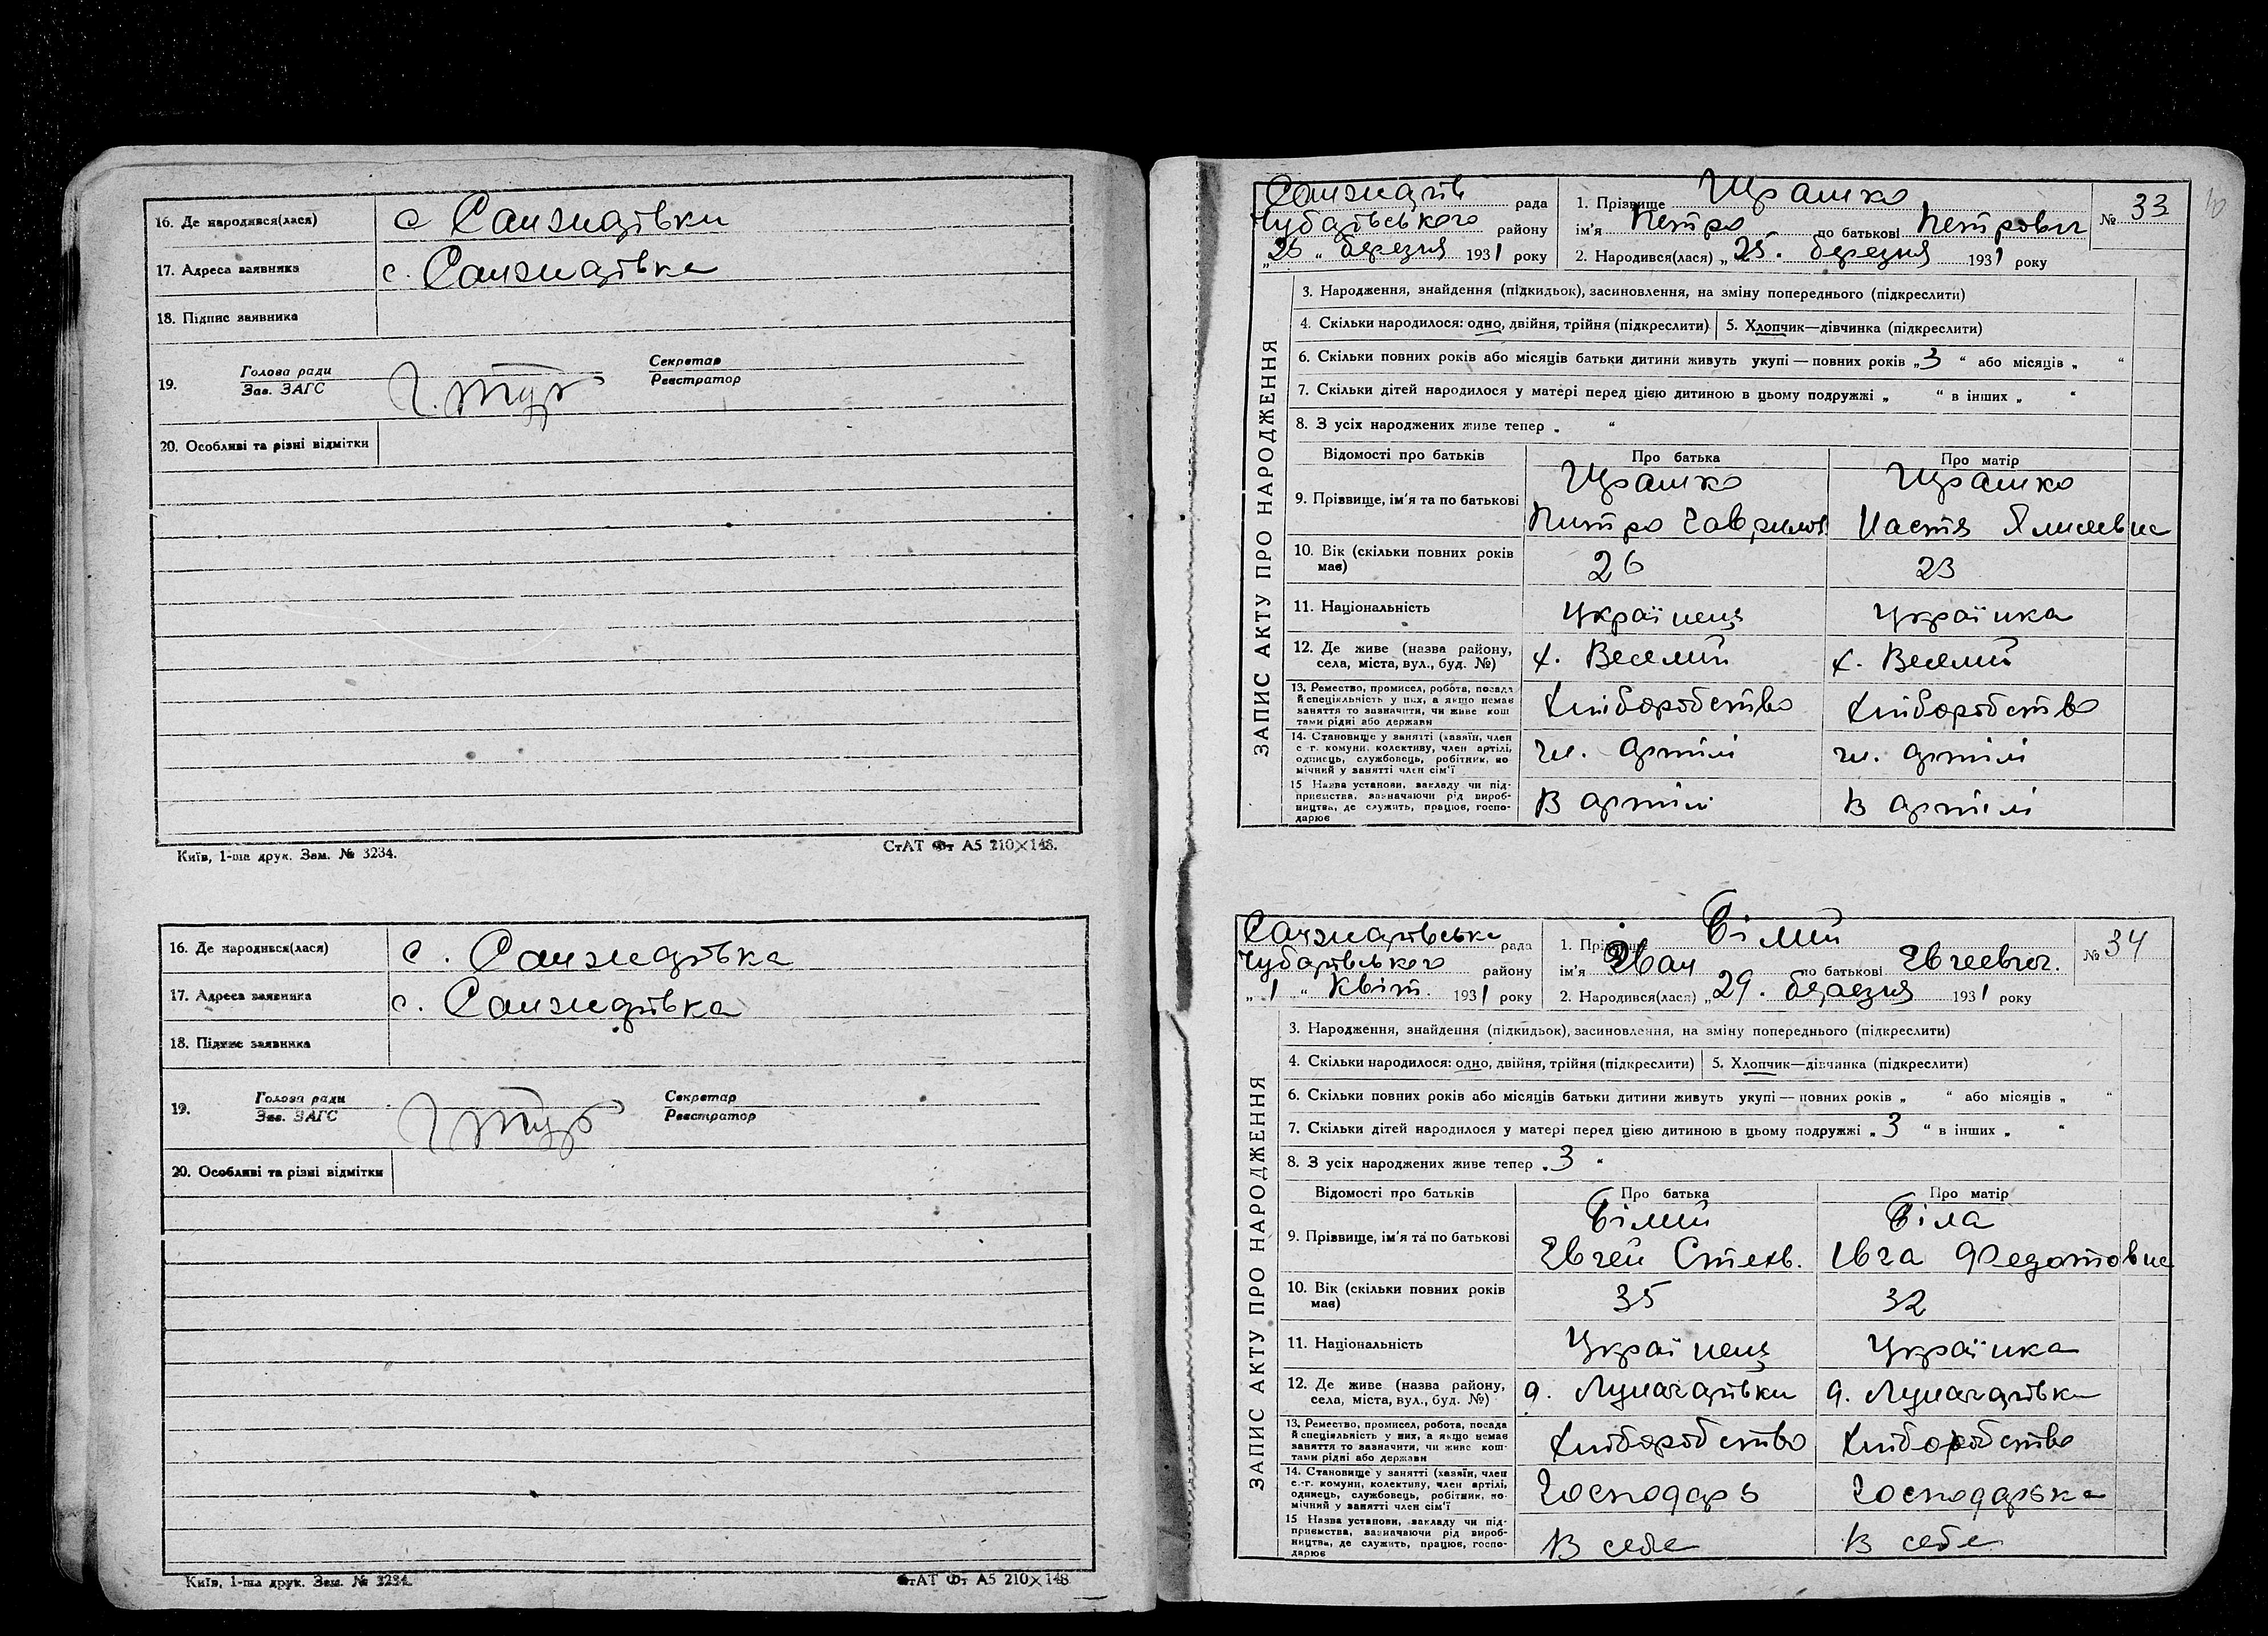 16. Де народився(лася) с Санжарівки
17. Адреса заявника с. Санжарівка
18. Підпис заявника
19. Голова ради
Зав. ЗАГС
Секретар
Реєстратор
20. Особливі та різні відмітки
Київ, 1-ша друк. Зам. № 3234.
СтАТ Фт А5 210×148.
16. Де народився(лася) с. Санжарівка
17. Адреса заявника с. Санжарівка
18. Підпис заявника
19. Голова ради
Зав. ЗАГС
Секретар
Реєстратор
20. Особливі та різні відмітки
Київ, 1-ша друк. Зам. № 3234.
СтАТ Фт А5 210×148
10
Санжарів рада
Чубарівського району
„26“ березня 1931 року
1. Прізвище
ім'я Петро по батькові Петрович
2. Народився(лася) „25. березня 1931 року
№ 33
ЗАПИС АКТУ ПРО НАРОДЖЕННЯ
3. Народження, знайдення (підкидьок), засиновлення, на зміну попереднього (підкреслити)
4. Скільки народилося: одно, двійня, трійня (підкреслити) 5. Хлопчик—дівчинка (підкреслити)
6. Скільки повних років або місяців батьки дитини живуть укупі — повних років „3“ або місяців „ “
7. Скільки дітей народилося у матері перед цією дитиною в цьому подружжі „ “ в інших „ “
8. З усіх народжених живе тепер „ “
Відомості про батьків Про батька Про матір
9. Прізвище, ім'я та по батькові
Питро Гаврилов. Настя
10. Вік (скільки повних років має) 26 23
11. Національність Українець Українка
12. Де живе (назва району, села, міста, вул., буд. №) х. Веселий х. Веселий
13. Ремество, промисел, робота, посада й спеціяльність у них, а якщо немає заняття то зазначити, чи живе коштами рідні або держави Хліборобство Хліборобство
14. Становище у занятті (хазяїн, член с.-г. комуни, колективу, член артілі, одинець, службовець, робітник, помічний у занятті член сім'ї чл. артілі чл. артілі
15 Назва установи, закладу чи підприємства, зазначаючи рід виробництва, де служить, працює, господарює В артілі В артілі
Санжарівська рада
Чубарівського району
„1“ Квіт. 1931 року
1. Прізвище Білий
ім'я Іван по батькові Евгеевич.
2. Народився(лася) „29. березня 1931 року
№ 34
ЗАПИС АКТУ ПРО НАРОДЖЕННЯ
3. Народження, знайдення (підкидьок), засиновлення, на зміну попереднього (підкреслити)
4. Скільки народилося: одно, двійня, трійня (підкреслити) 5. Хлопчик—дівчинка (підкреслити)
6. Скільки повних років або місяців батьки дитини живуть укупі — повних років „ “ або місяців „ “
7. Скільки дітей народилося у матері перед цією дитиною в цьому подружжі „3“ в інших „ “
8. З усіх народжених живе тепер „3“
Відомості про батьків Про батька Про матір
9. Прізвище, ім'я та по батькові Білий Біла
Евгей Івга Федотовна
10. Вік (скільки повних років має) 35 32
11. Національність Українець Українка
12. Де живе (назва району, села, міста, вул., буд. №) Луначарівки Луначарівк
13. Ремество, промисел, робота, посада й спеціяльність у них, а якщо немає заняття то зазначити, чи живе коштами рідні або держави Хліборобство Хліборобство
14. Становище у занятті (хазяїн, член с.-г. комуни, колективу, член артілі, одинець, службовець, робітник, помічний у занятті член сім'ї Господарь Господарька
15 Назва установи, закладу чи підприємства, зазначаючи рід виробництва, де служить, працює, господарює В себе В себе